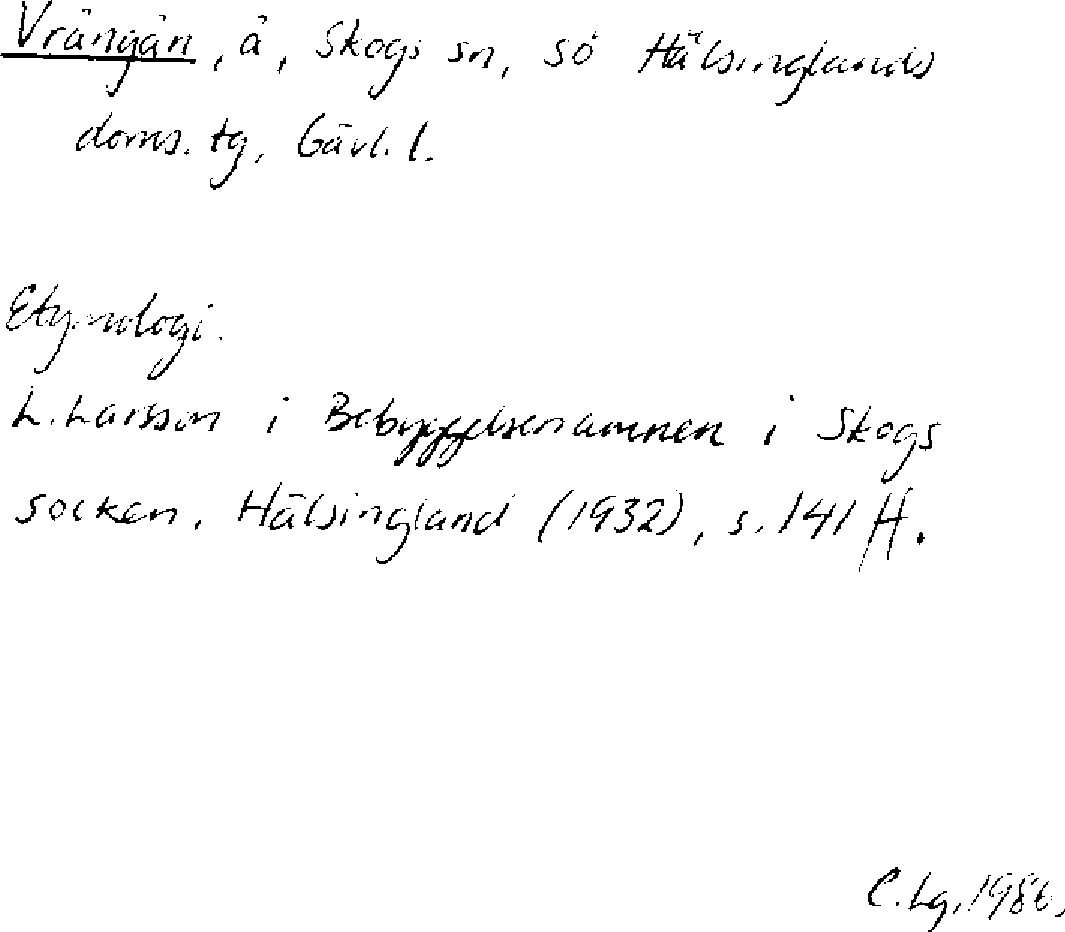 Vrångån, å, Skogs sn, sö Hälsinglands
doms. tg, Gävl. l.
Etymologi.
L. Larsson i Bebyggelsenamnen i Skogs
socken. Hälsingland (1932), s. 141 ff.
C. Lg, 1986.